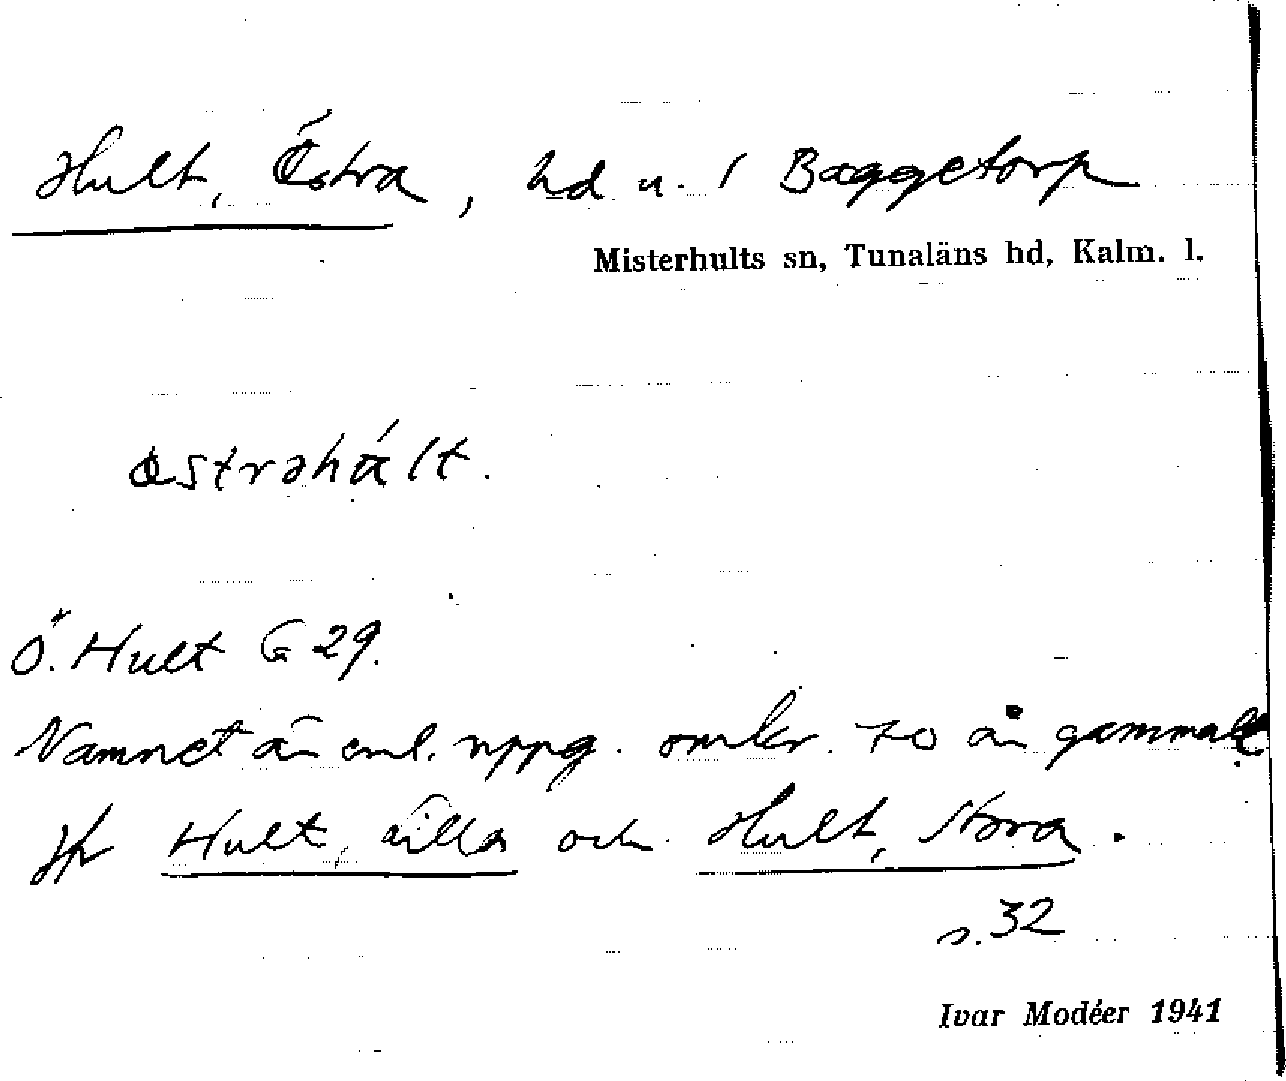 Hult, Östra, hd u. / Baggetorp
Misterhults sn, Tunaläns hd, Kalm. l.
östrəhált.
Ö. Hult G 29.
Namnet är enl. uppg. omkr. 70 år gammalt.
Jfr Hult, Lilla och Hult, Stora.
s. 32
Ivar Modéer 1941